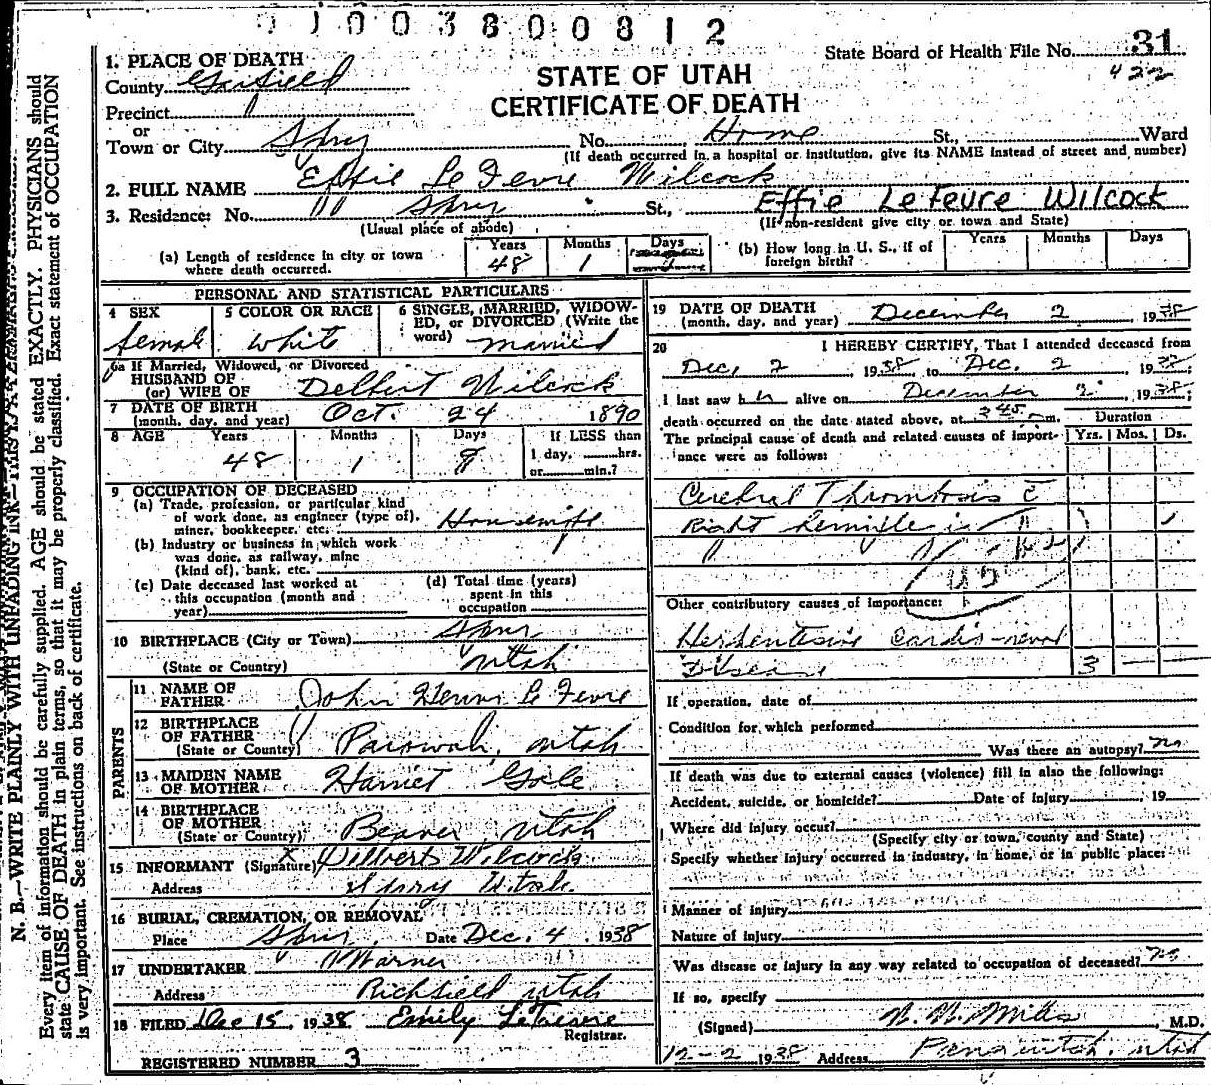 01003800812
State Board of Health File No. 31
422
STATE OF UTAH
CERTIFICATE OF DEATH
1. PLACE OF DEATH
County Garfield
Precinct
or
Town or City Spry No. Home St., Ward
(If death occurred in a hospital or institution, give its NAME instead of street and number)
2. FULL NAME Effie Le Fevre Wilcock
Effie LeFevre Wilcock
3. Residence: No. " Spry St.,
(Usual place of abode)
(If non-resident give city or town and State)
(a) Length of residence in city or town where death occurred. Years 48 Months 1 Days
(b) How long in U. S., if of foreign birth? Years Months Days
PERSONAL AND STATISTICAL PARTICULARS
4 SEX female
5 COLOR OR RACE white
6 SINGLE, MARRIED, WIDOWED, or DIVORCED (Write the word) married
6a If Married, Widowed, or Divorced
HUSBAND OF
(or) WIFE OF Delbert Wilcock
7 DATE OF BIRTH
(month, day, and year) Oct. 24 1890
8 AGE Years 48 Months 1 Days 8
If LESS than
1 day, hrs.
or min.?
9 OCCUPATION OF DECEASED
(a) Trade, profession, or particular kind
of work done, as engineer (type of),
miner, bookkeeper, etc. Housewife
(b) Industry or business in which work
was done, as railway, mine
(kind of), bank, etc.
(c) Date deceased last worked at
this occupation (month and
year)
(d) Total time (years)
spent in this
occupation
10 BIRTHPLACE (City or Town) Spry
(State or Country) Utah
PARENTS
11 NAME OF
FATHER John Henry Le Fevre
12 BIRTHPLACE
OF FATHER
(State or Country) Parowah, Utah
13 MAIDEN NAME
OF MOTHER Harriet
14 BIRTHPLACE
OF MOTHER
(State or Country) Beaver Utah
15 INFORMANT (Signature) X Dilbert Wilcock
Address Spry Utah.
16 BURIAL, CREMATION, OR REMOVAL
Place Spry Date Dec. 4, 1938
17 UNDERTAKER Warner
Address Richfield Utah
18 FILED Dec 15, 1938 Emily LeFevre
Registrar.
REGISTERED NUMBER 3
19 DATE OF DEATH
(month, day, and year) December 2 1938
20 I HEREBY CERTIFY, That I attended deceased from
Dec. 2 1938, to Dec. 2 1938
I last saw her alive on December 2, 1938;
death occurred on the date stated above, at 3 45 m.
The principal cause of death and related causes of importance were as follows:
Duration
Yrs. Mos. Ds.
Cerebral Thrombosis c̄
Right
Other contributory causes of importance:
Hypertensive cardio-renal
Disease 3 —
If operation, date of
Condition for which performed
Was there an autopsy? no
If death was due to external causes (violence) fill in also the following:
Accident, suicide, or homicide? Date of injury , 19
Where did injury occur?
(Specify city or town, county and State)
Specify whether injury occurred in industry, in home, or in public place:
Manner of injury
Nature of injury
Was disease or injury in any way related to occupation of deceased? no
If so, specify
(Signed) , M.D.
12-2 1938 Address Panguitch, Utah
N. B.—WRITE PLAINLY WITH UNFADING INK—THIS IS A PERMANENT RECORD.
Every item of information should be carefully supplied. AGE should be stated EXACTLY. PHYSICIANS should
state CAUSE OF DEATH in plain terms, so that it may be properly classified. Exact statement of OCCUPATION
is very important. See instructions on back of certificate.